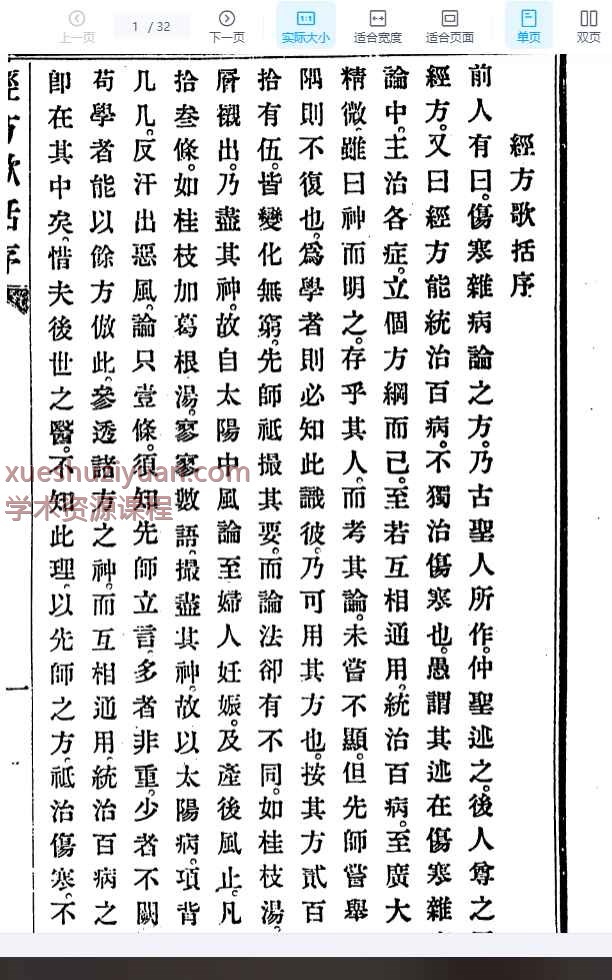 上一页 1 / 32 下一页 实际大小 适合宽度 适合页面 单页 双页
經方歌括序
前人有曰。傷寒雜病論之方。乃古聖人所作。仲聖述之。後人尊之
經方。又曰經方能統治百病。不獨治傷寒也。愚謂其述在傷寒雜
論中。主治各症。立個方綱而已。至若互相通用。統治百病。至廣大
精微。雖曰神而明之。存乎其人。而考其論。未嘗不顯。但先師嘗舉
隅則不復也。爲學者則必知此識彼。乃可用其方也。按其方貳百
拾有伍。皆變化無窮。先師祗撮其要。而論法卻有不同。如桂枝湯。
襯出。乃盡其神。故自太陽中風論至婦人妊娠。及產後風止。凡
拾叁條。如桂枝加葛根湯。寥寥數語。撮盡其神。故以太陽病。項背
几几。反汗出惡風。論只壹條。須知先師立言。多者非重。少者不闕
苟學者能以餘方倣此。參透諸方之神。而互相通用。統治百病之
卽在其中矣。惜夫後世之醫。不知此理。以先師之方。祗治傷寒。不
經方歌括序
一
xueshuziyuan.com
学术资源课程